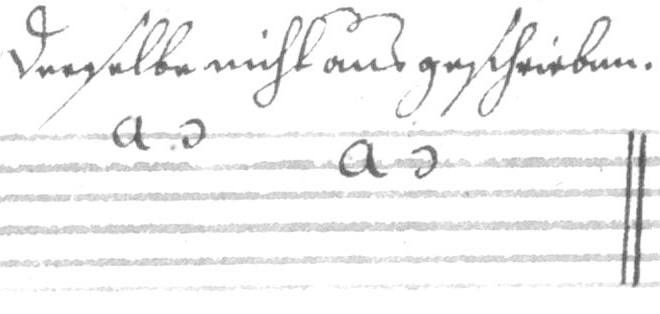 derselbe nicht ausgeschrieben.
a ɔ a ɔ